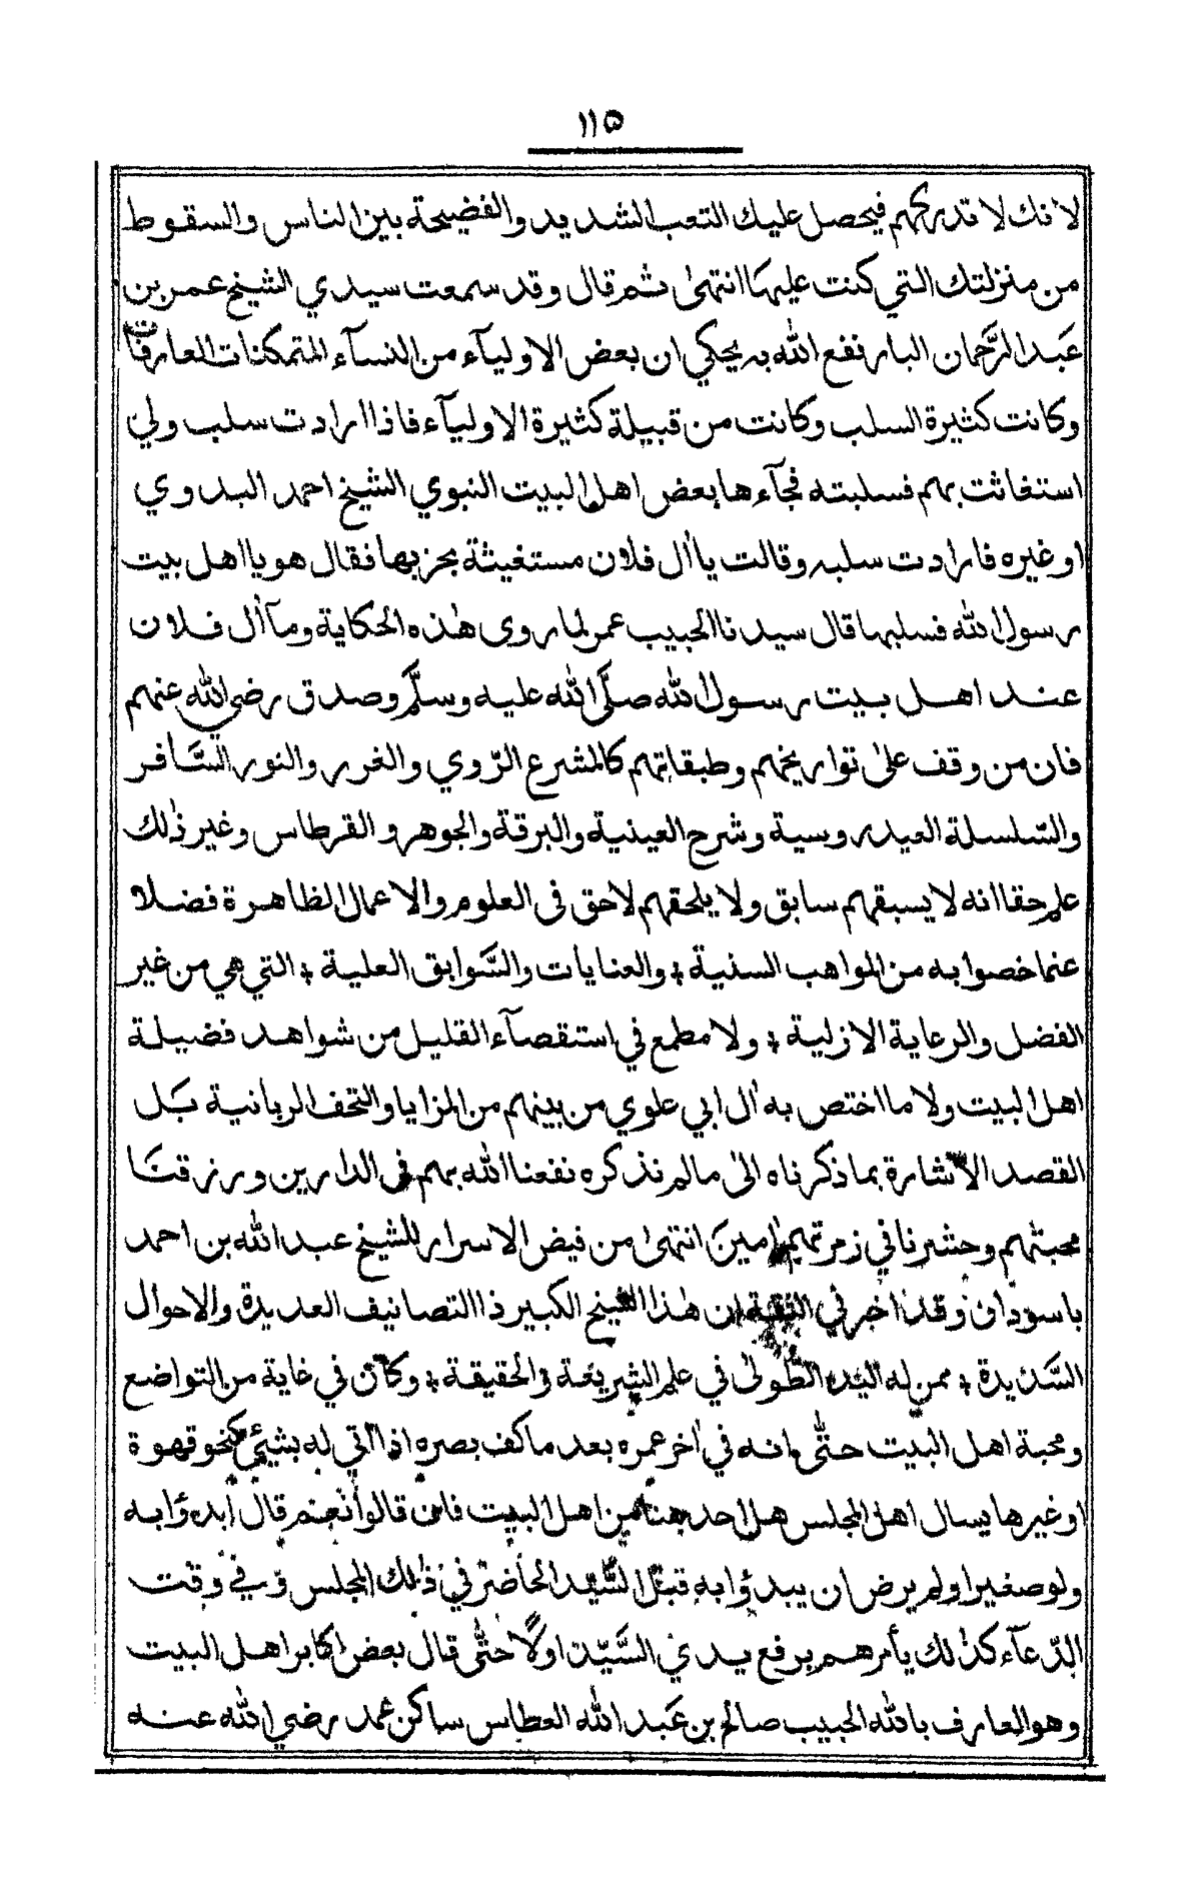 ١١٥
لانك لا تدركهم فيحصل عليك التعب الشديد والفضيحة بين الناس والسقوط
من منزلتك التي كنت عليها انتهىٰ ثم قال وقد سمعت سيدي الشيخ عمر بن
عَبد الرَّحمان البار نفع الله به يحكي ان بعض الاوليآء من النسآء المتمكنات العارفات
وكانت كثيرة السلب وكانت من قبيلة كثيرة الاوليآء فاذا ارادت سلب ولي
استغاثت بهم فسلبته فجآءها بعض اهل البيت النبوي الشيخ احمد البدوي
اوغيره فارادت سلبه وقالت يا اٰل فلان مستغيثة بحزبها فقال هو يا اهل بيت
رسول الله فسلبها قال سيدنا الحبيب عمر لما روى هٰذه الحكاية ومآ اٰل فلان
عند اهل بيت رسول الله صلَّى الله عليه وسلَّم وصدق رضي الله عنهم
فان من وقف علىٰ تواريخهم وطبقاتهم كالمشرع الرّوي والغرر والنور السَّافر
والسّلسلة العيدروسية وشرح العينية والبرقة والجوهر و القرطاس وغير ذٰلك
علم حقا انه لا يسبقهم سابق ولا يلحقهم لاحق فى العلوم والاعمال الظاهرة فضلا
عما خصوا به من المواهب السنية ؛ والعنايات والسَّوابق العلية ؛ التي هي من غير
الفضل والرعاية الازلية ؛ ولا مطمع في استقصآء القليل من شواهد فضيلة
اهل البيت ولا ما اختص به اٰل ابي علوي من بينهم من المزايا والتحف الربانية بَل
القصد الاشارة بما ذكرناه الىٰ ما لم نذكره نفعنا الله بهم في الدارين ورزقنَا
محبتهم وحشرنا في زمرتهم اٰمينَ انتهىٰ من فيض الاسرار للشيخ عبد الله بن احمد
باسودان وقد اخبرني الثقة ان هٰذا الشيخ الكبير ذا التصانيف العديدة والاحوال
السَّديدة ؛ ممن له اليد الطُّولىٰ في علم الشريعة والحقيقة ؛ وكان في غاية من التواضع
ومحبة اهل البيت حتّٰى انه في اٰخر عمره بعد ما كف بصره اذا اتي له بشيئ كنحو قهوة
اوغيرها يسال اهل المجلس هل احد هنا من اهل البيت فان قالوا نعم قال ابدؤا به
ولو صغيرا ولم يرض ان يبدؤا به قبل السَّيّد الحاضر في ذٰلك المجلس وفي وقت
الدّعآء كذٰلك يأمرهم برفع يدي السَّيّد اولًا حتّٰى قال بعض اكابر اهل البيت
وهو العارف بالله الحبيب صالح بن عَبد الله العطاس ساكن عمد رضي الله عنه